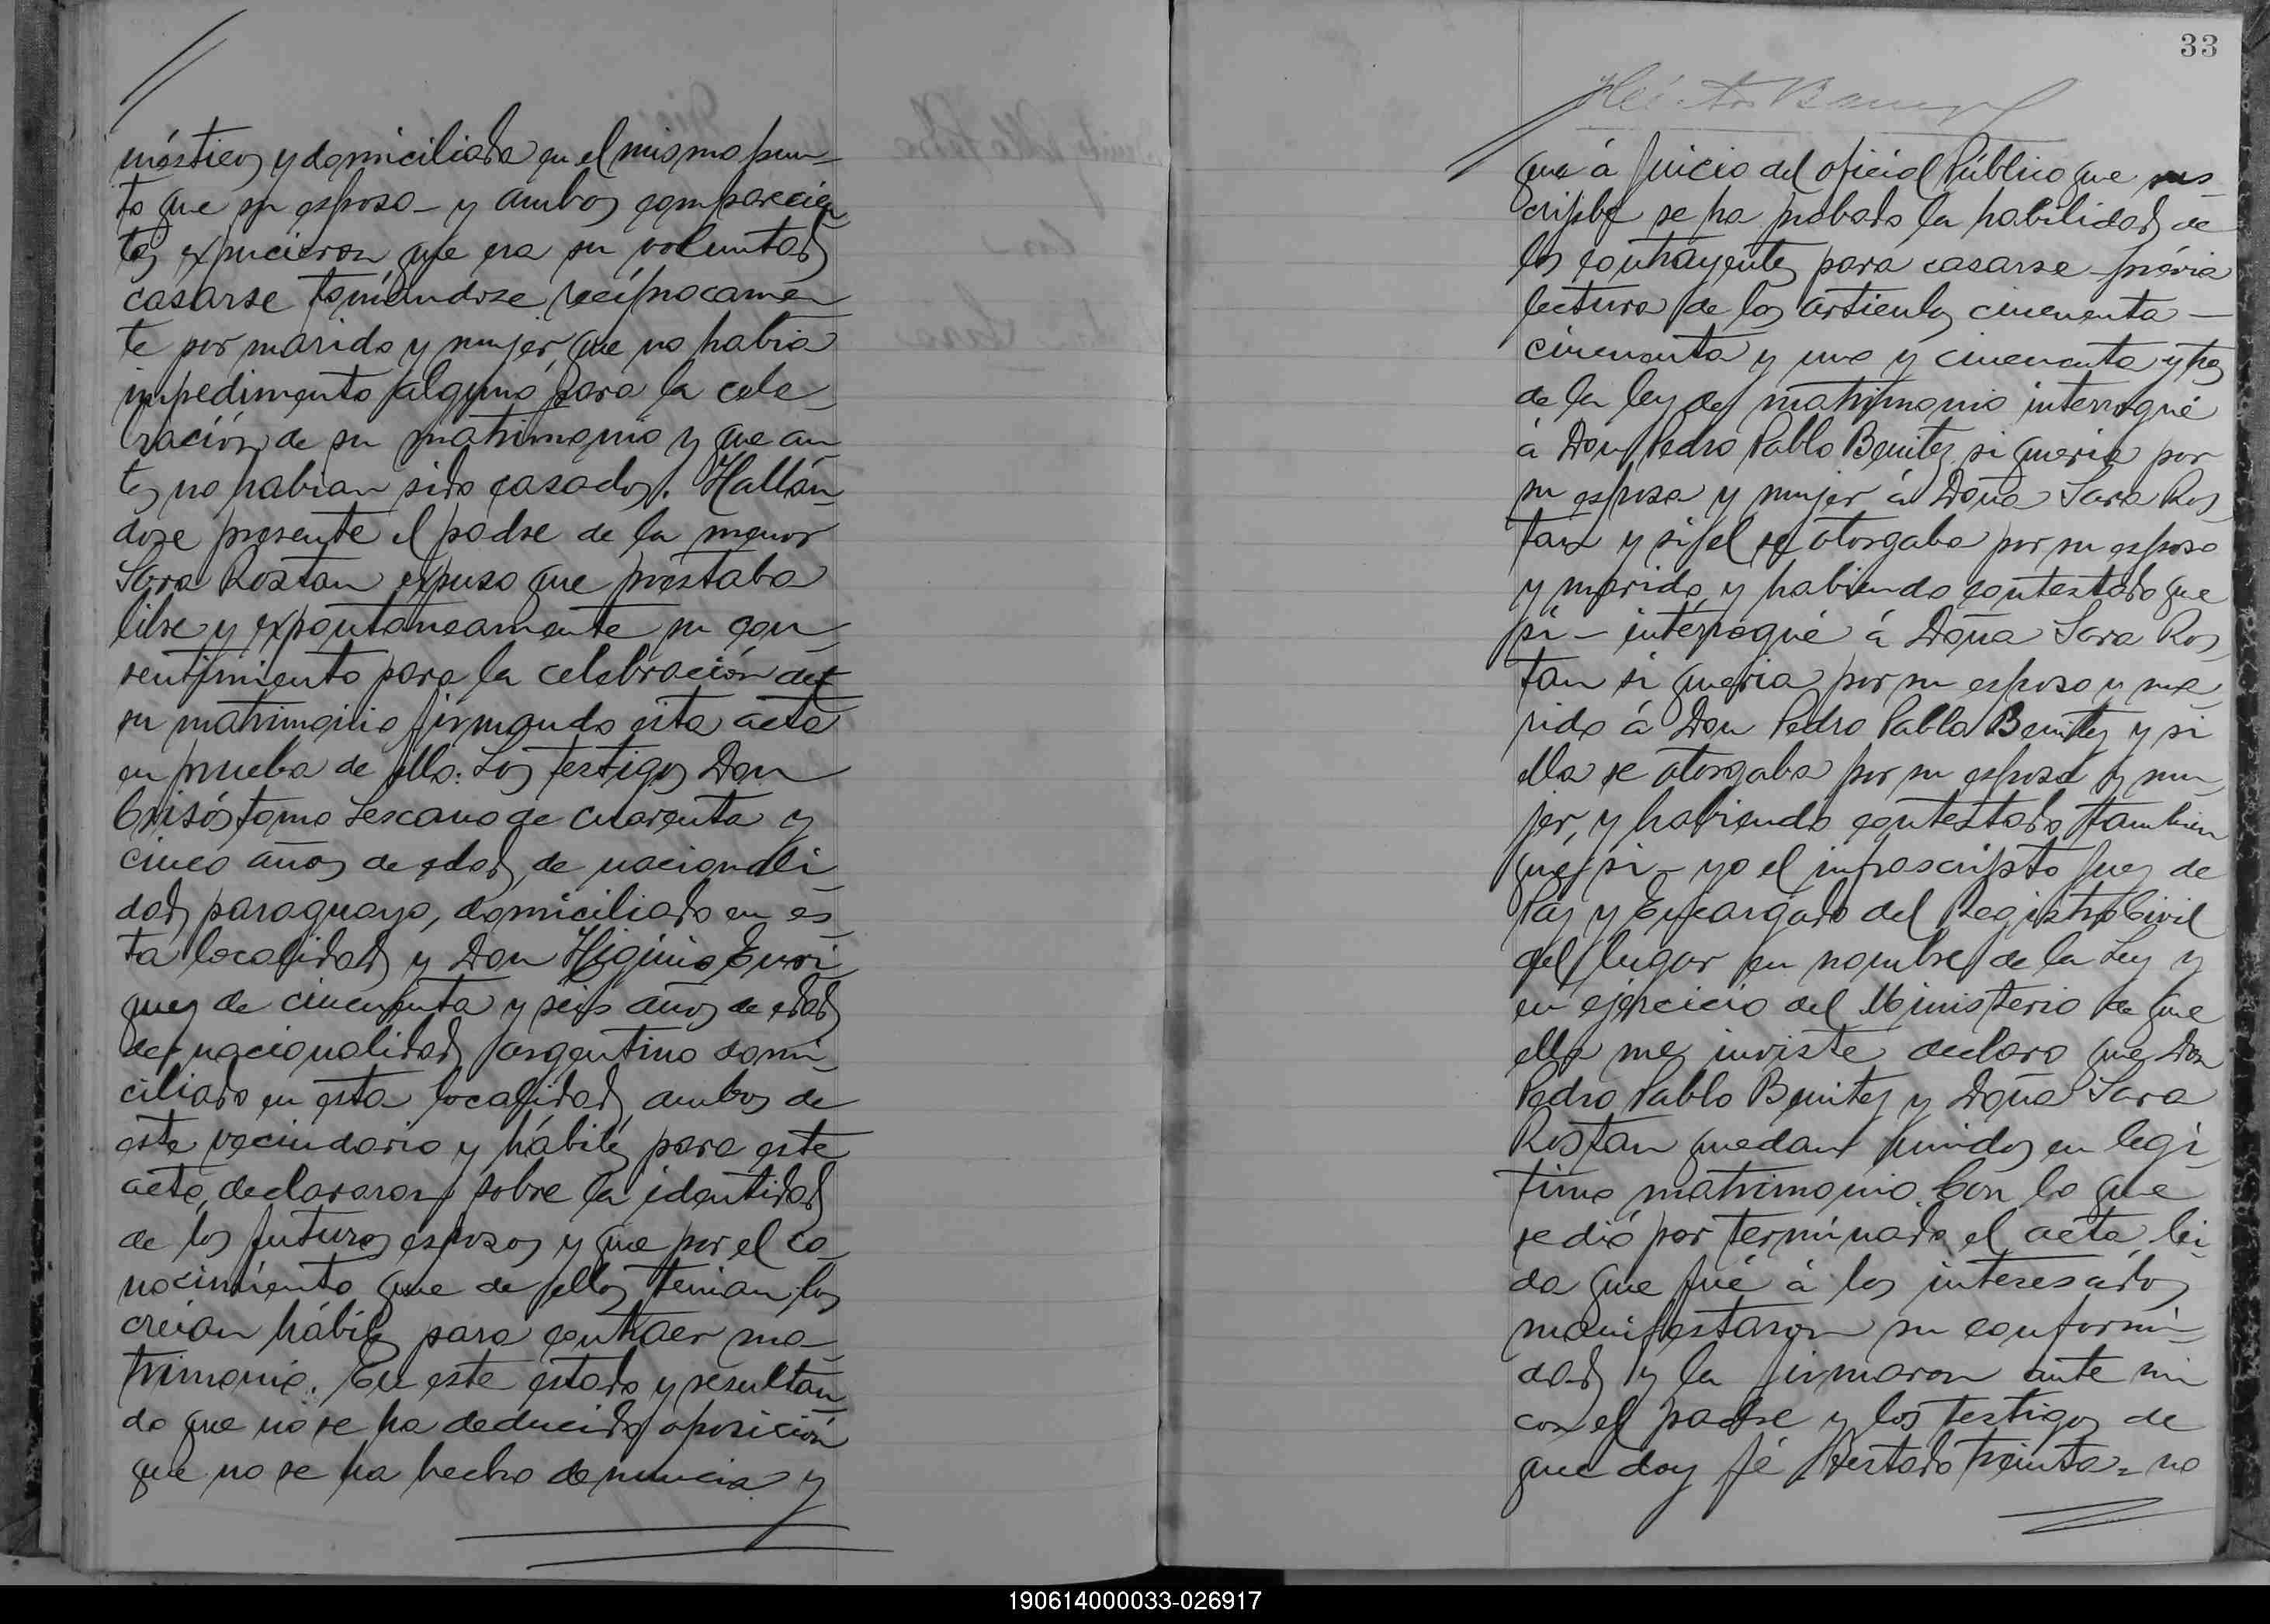 mésticos y domiciliada en el mismo pun-
to que su esposo - y ambos comparecien
tes expucieron que era su voluntad
casarse tomandose recíprocamen
te por marido y mujer, que no habia
impedimento alguno para la cele-
bración de su matrimonio y que an
tes no habian sido casados. Hallán-
dose presente el padre de la menor
Sara Rostan expuso que prestaba
libre y expontaneamente su con-
sentimiento para la celebración de
su matrimonio firmando esta acta
en prueba de ello. Los testigos Don
Crisóstomo Lescano de cuarenta y
cinco años de edad, de nacionali-
dad paraguaya, domiciliado en es-
ta localidad y Don Higinio Enri-
quez de cincuenta y seis años de edad
de nacionalidad argentino domi-
ciliado en esta localidad, ambos de
este vecindario y hábiles para este
acto, declararon sobre la identidad
de los futuros esposos y que por el co-
nocimiento que de ellos tenian los
creian hábiles para contraer ma-
trimonio. En este estado y resultan
do que no se ha deducido oposición
que no se ha hecho denuncia y
33
Héctor
que á juicio del oficial Público que sus-
cribe se ha probado la habilidad de
los contrayentes para casarse - prévia
lectura de los articulos cincuenta -
cincuenta y uno y cincuenta y tres
de la ley de matrimonio interrogué
á Don Pedro Pablo Benitez si queria por
su esposa y mujer á Doña Sara Ros-
tan y si el se otorgaba por su esposo
y marido y habiendo contestado que
si - interrogué á Doña Sara Ros-
tan si queria por su esposo y ma-
rido á Don Pedro Pablo Benitez y si
ella se otorgaba por su esposa y mu-
jer, y habiendo contestado tambien
que si - yo el infrascripto Juez de
Paz y Encargado del Registro Civil
del lugar en nombre de la Ley y
en ejercicio del Ministerio de que
ella me inviste declaro que Don
Pedro Pablo Benitez y Doña Sara
Rostan quedan unidos en legi-
timo matrimonio. Con lo que
se dió por terminado el acta, lei-
da que fué á los interesados
manifestaron su conformi-
dad y la firmaron ante mi
con el padre y los testigos de
que doy fé. Testado treinta = no
190614000033-026917